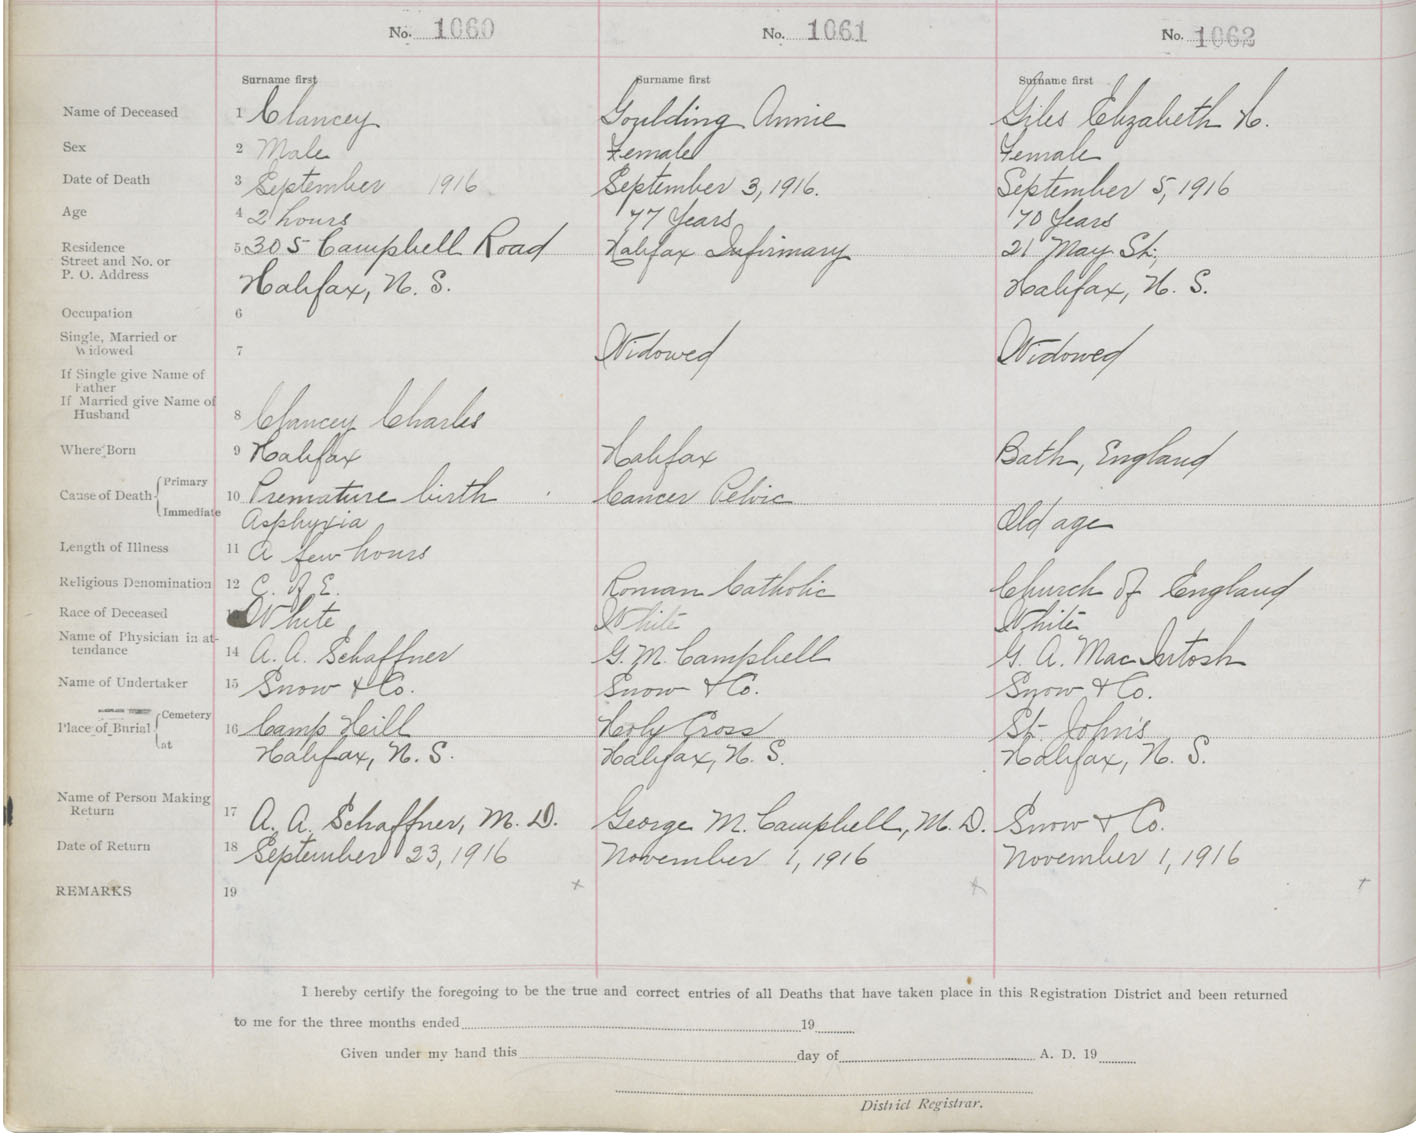 No. 1060 No. 1061 No. 1062
Surname first Surname first Surname first
Name of Deceased 1 Clancey Goulding Annie Giles Elizabeth H.
Sex 2 Male Female Female
Date of Death 3 September 1916 September 3, 1916. September 5, 1916
Age 4 2 hours 77 Years 70 Years
Residence 5 305 Campbell Road Halifax Infirmary 21 May St.,
Street and No. or
P. O. Address Halifax, N. S. Halifax, N. S.
Occupation 6
Single, Married or
Widowed 7 Widowed Widowed
If Single give Name of
Father
If Married give Name of
Husband 8 Clancey Charles
Where Born 9 Halifax Halifax Bath, England
Cause of Death Primary 10 Premature birth Cancer Pelvic
Immediate Asphyxia Old age
Length of Illness 11 A few hours
Religious Denomination 12 C. of E. Roman Catholic Church of England
Race of Deceased White White White
Name of Physician in at-
tendance 14 A. A. Schaffner G. M. Campbell G. A. MacIntosh
Name of Undertaker 15 Snow & Co. Snow & Co. Snow & Co.
Place of Burial Cemetery 16 Camp Hill Holy Cross St. John's
at Halifax, N. S. Halifax, N. S. Halifax, N. S.
Name of Person Making
Return 17 A. A. Schaffner, M. D. George M. Campbell, M. D. Snow & Co.
Date of Return 18 September 23, 1916 November 1, 1916 November 1, 1916
REMARKS 19 x x +
I hereby certify the foregoing to be the true and correct entries of all Deaths that have taken place in this Registration District and been returned
to me for the three months ended 19
Given under my hand this day of A. D. 19
District Registrar.